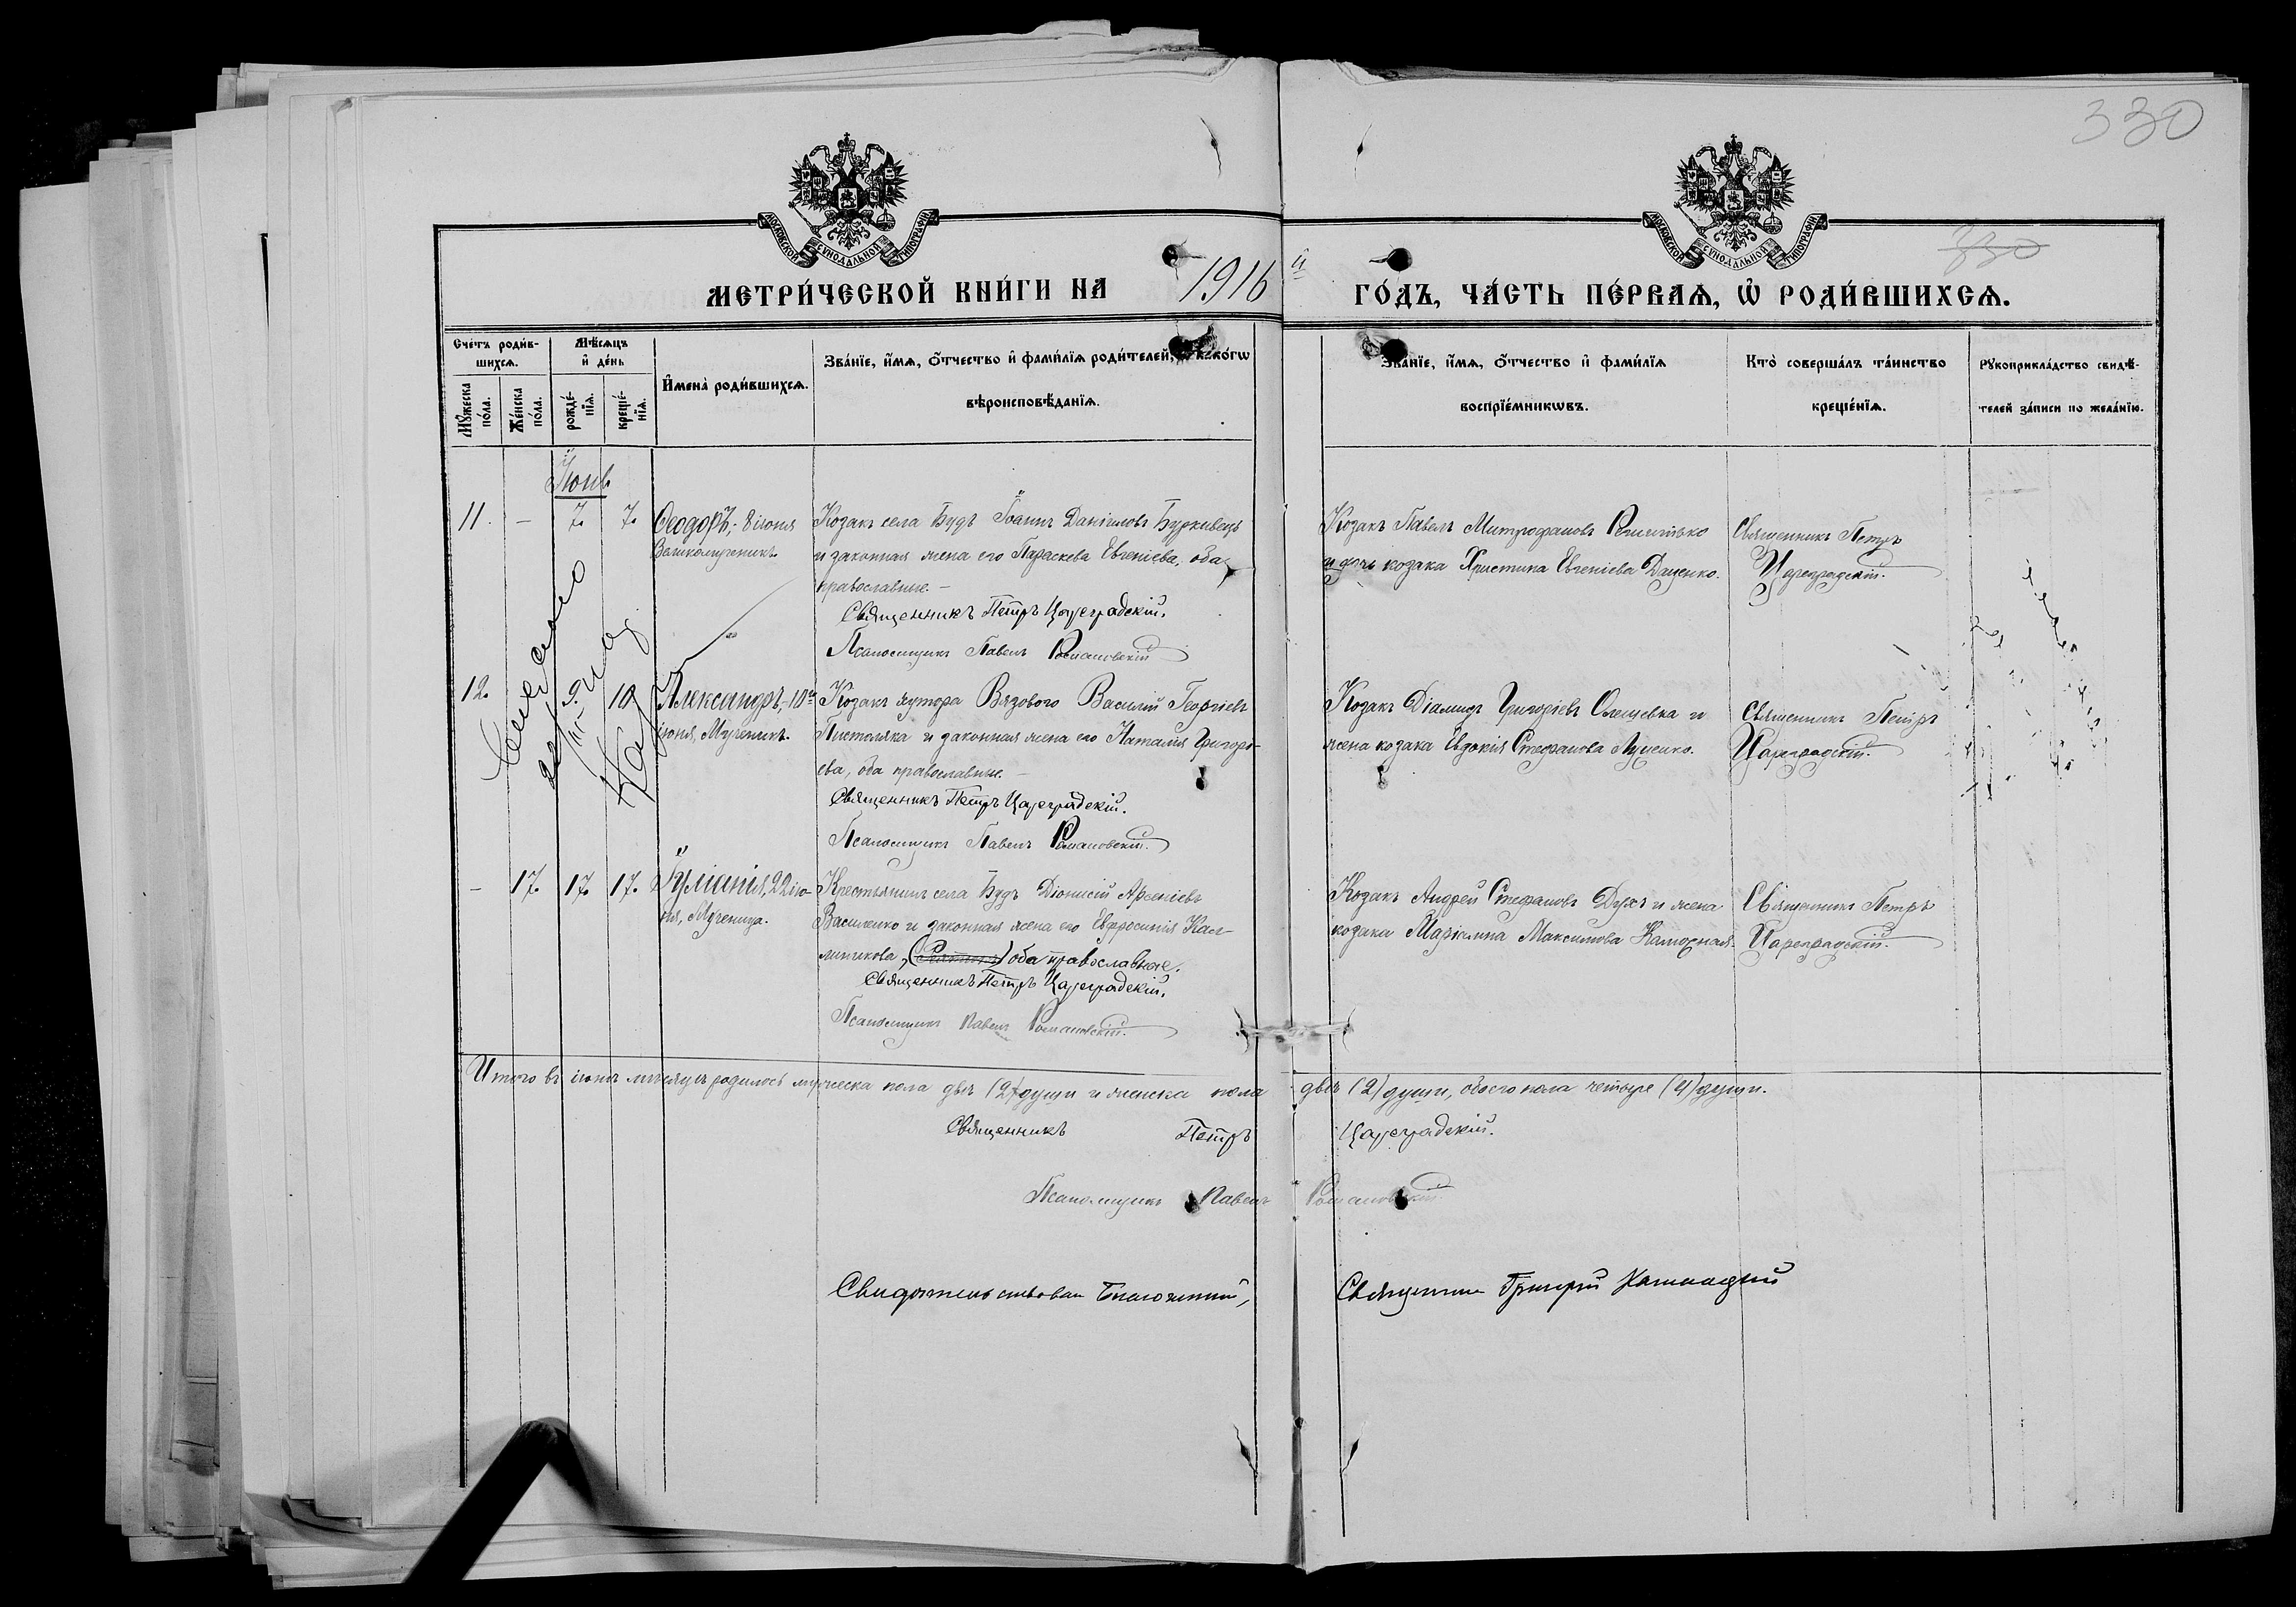 330
МОСКОВСКОЙ СѴНОДАЛЬНОЙ ТИПОГРАФІИ
МОСКОВСКОЙ СѴНОДАЛЬНОЙ ТИПОГРАФІИ
330
МЕТРИ́ЧЕСКОЙ КНИ́ГИ НА 1916 й ГО́ДЪ, ЧА́СТЬ ПЕ́РВАѦ, Ѡ РОДИ́ВШИХСѦ.
Счетъ роди́вшихсѧ.
Мꙋ́жеска по́ла.
Же́нска по́ла.
Мѣ́сѧцъ и де́нь
рожде́нїѧ.
креще́нїѧ.
Имена̀ роди́вшихсѧ.
Зва́нїе, и́мѧ, о́тчество и фами́лїѧ роди́телей, и како́гѡ
вѣроисповѣ́данїѧ.
Зва́нїе, и́мѧ, о́тчество и фами́лїѧ
воспрїе́мникѡвъ.
Кто̀ соверша́лъ та́инство
креще́нїѧ.
Рꙋкоприкла́дство свидѣ́-
телей за́писи по жела́нїю.
Іюнь
11. - 7. 7.
Ѳеодоръ; 8 іюня
Великомученикъ.
Козакъ села Будъ Іоаннъ Даніиловъ Бурківецъ
и законная жена его Параскева Евгеніева, оба
православные.-
Священникъ Петръ Цареградскій.
Псаломщикъ Павелъ Романовскій
Козакъ Павелъ Митрофановъ Решетько
и дочь козака Христина Евгеніева Даценко.
Священникъ Петръ
Цареградскій.
12. 9. 10
Александръ,-10го
іюня, Мученикъ.
Козакъ хутора Вязового Василій Георгіевъ
Пистоляка и законная жена его Наталія Григорі-
ева, оба православные.
Священникъ Петръ Цареградскій.
Псаломщикъ Павелъ Романовскій.
Козакъ Діамидъ Григоріевъ Олещевка и
жена козака Евдокія Стефанова Луценко.
Священникъ Петръ
Цареградскій.
- 17. 17. 17.
Іуліанія, 22 ію-
ня, Мученица.
Крестьянинъ села Будъ Діонисій Арсеніевъ
Василенко и законная жена его Евфросинія Кал-
линикова, оба православные.
Священникъ Петръ Цареградскій.
Псаломщикъ Павелъ Романовскій.
Козакъ Андрей Стефановъ Духъ и жена
козака Маріамна Максимова Калюжная.
Священникъ Петръ
Цареградскій.
Итого въ іюнѣ мѣсяцѣ родилось мужеска пола двѣ (2) души и женска пола двѣ (2) души, обоего пола четыре (4) души.
Священникъ Петръ Цареградскій.
Псаломщикъ Павелъ Романовскій.
Свидѣтельствовалъ Благочинный, Священникъ Григорій